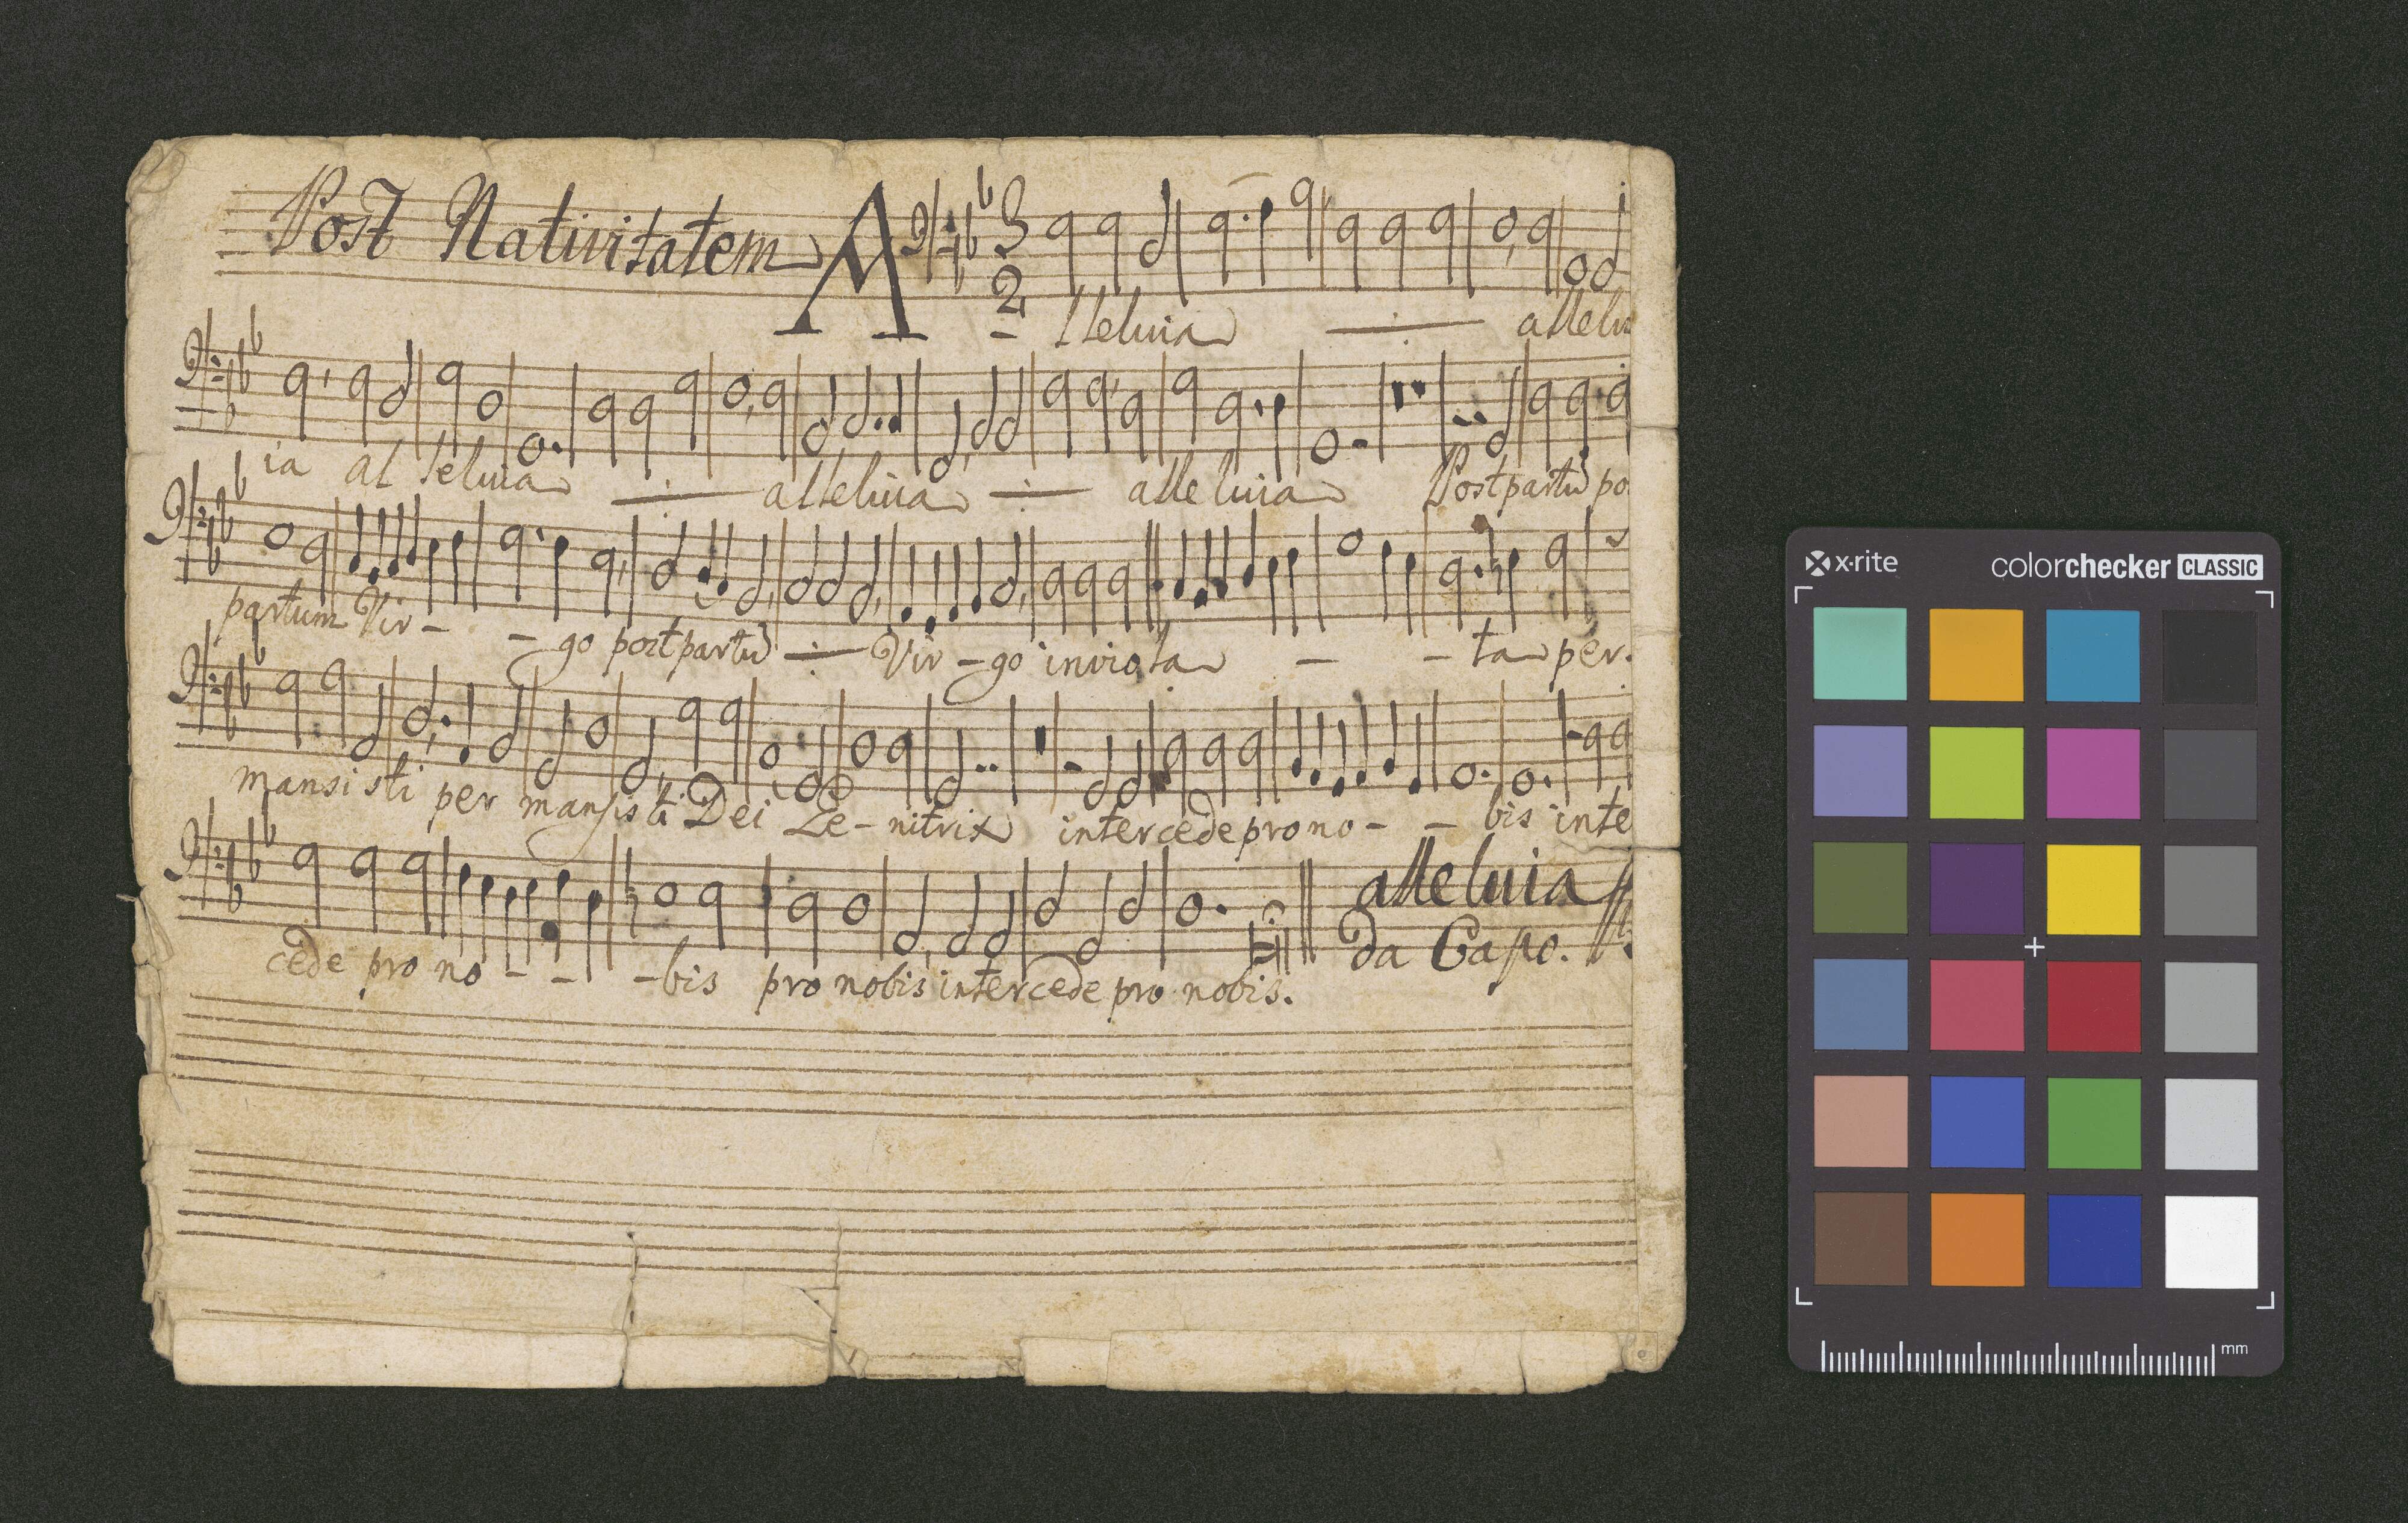 Post Nativitatem A 3 2
- lleluia ÷ allelu
ia al leluia ÷ alleluia ÷ alleluia Post partū po
partum Vir - - go post partū ÷ Vir - go inviola - - ta per.
mansi sti per mansisti Dei Ge - nitrix intercede pro no - - bis inte
cede pro no - - - bis pro nobis intercede pro nobis.
alleluia
Da Capo.
x·rite colorchecker CLASSIC
mm